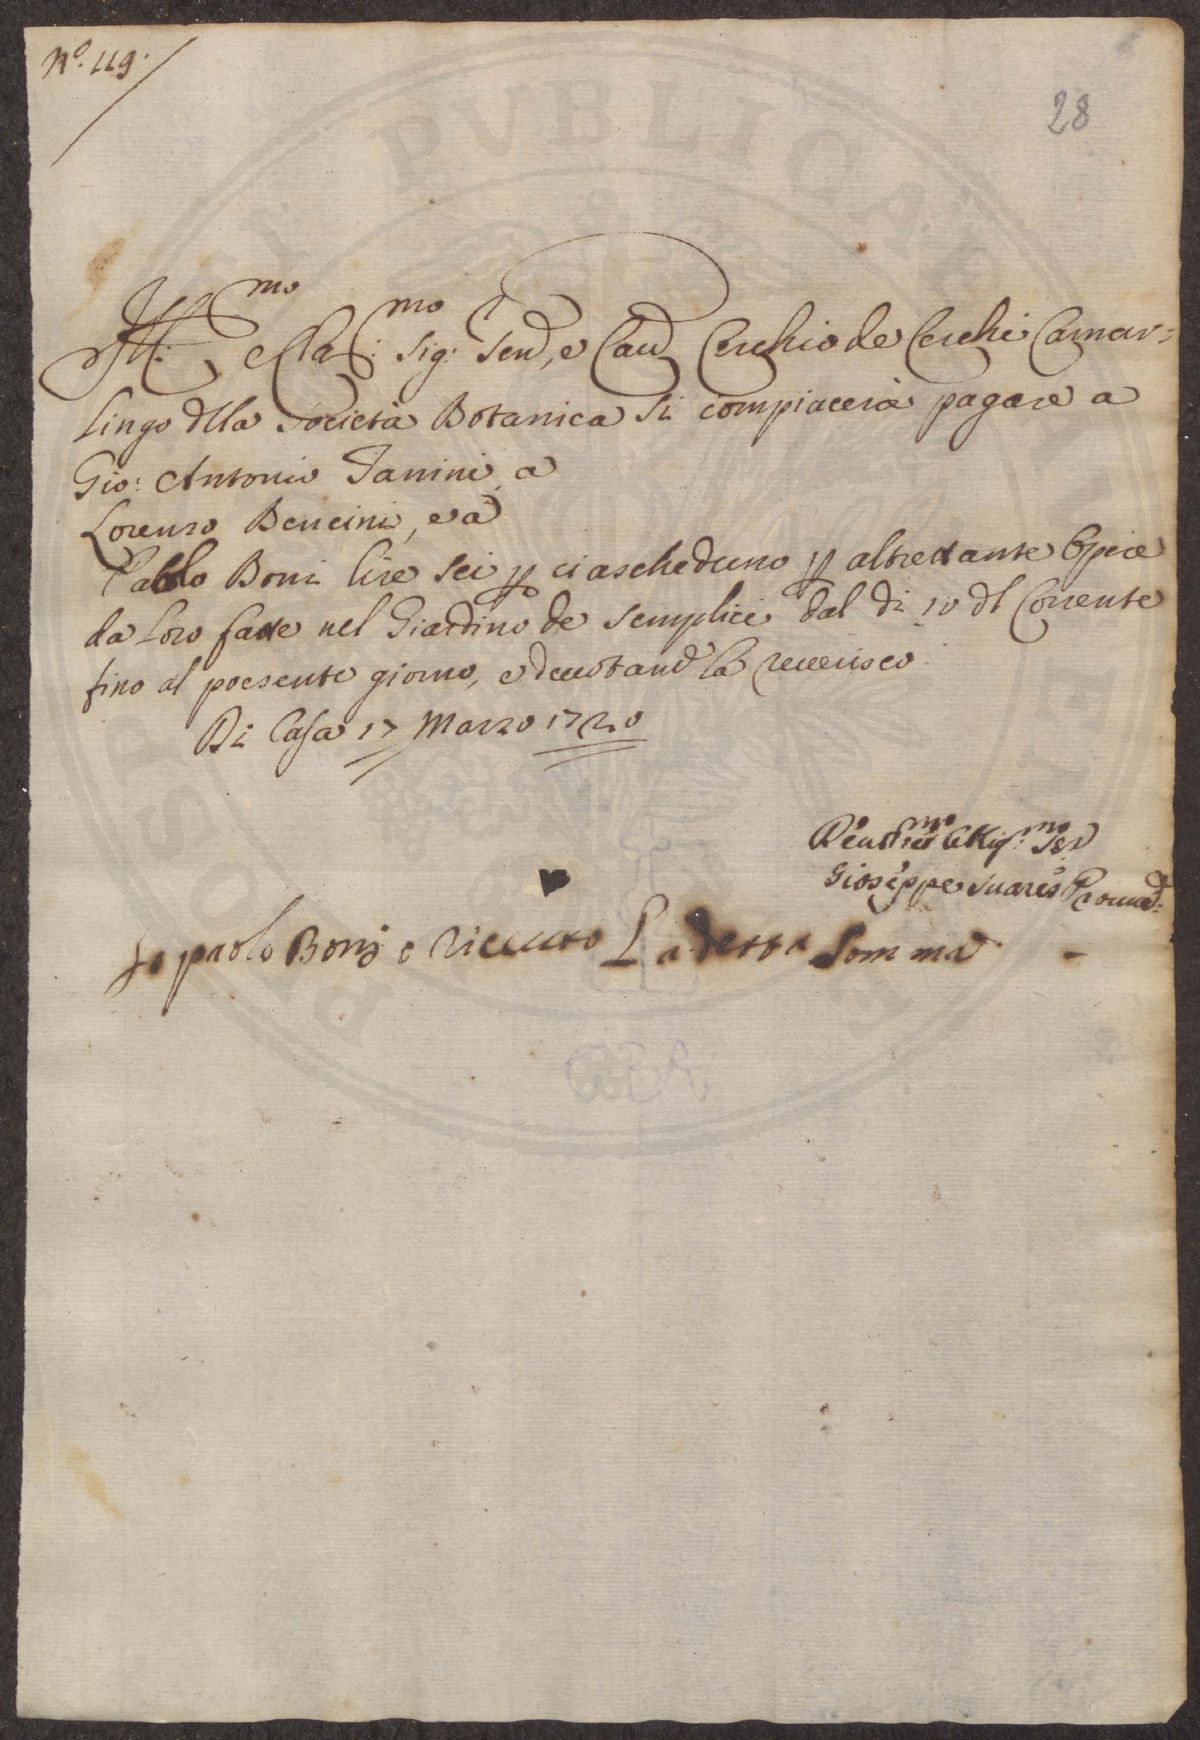 N.º 119.
28
Ill:mo e Cla:mo Sig: Sen, e Cav Cerchio de Cerchi Camar=
lingo dlla Società Botanica Si compiacerà pagare a
Gio: Antonio Fanini, a
Lorenzo Bencini, e a
Pablo Boni lire sei p ciascheduno p altrettante Opere
da Loro fatte nel Giardino de Semplici dal di 10 dl Corrente
fino al presente giorno, e devotand la reverisco
Di Casa 17 Marzo 1720
Devot:mo Oblig:mo Ser
Gioseppe Suares Proved:
Io paolo Boni o riceuto La detta Somma